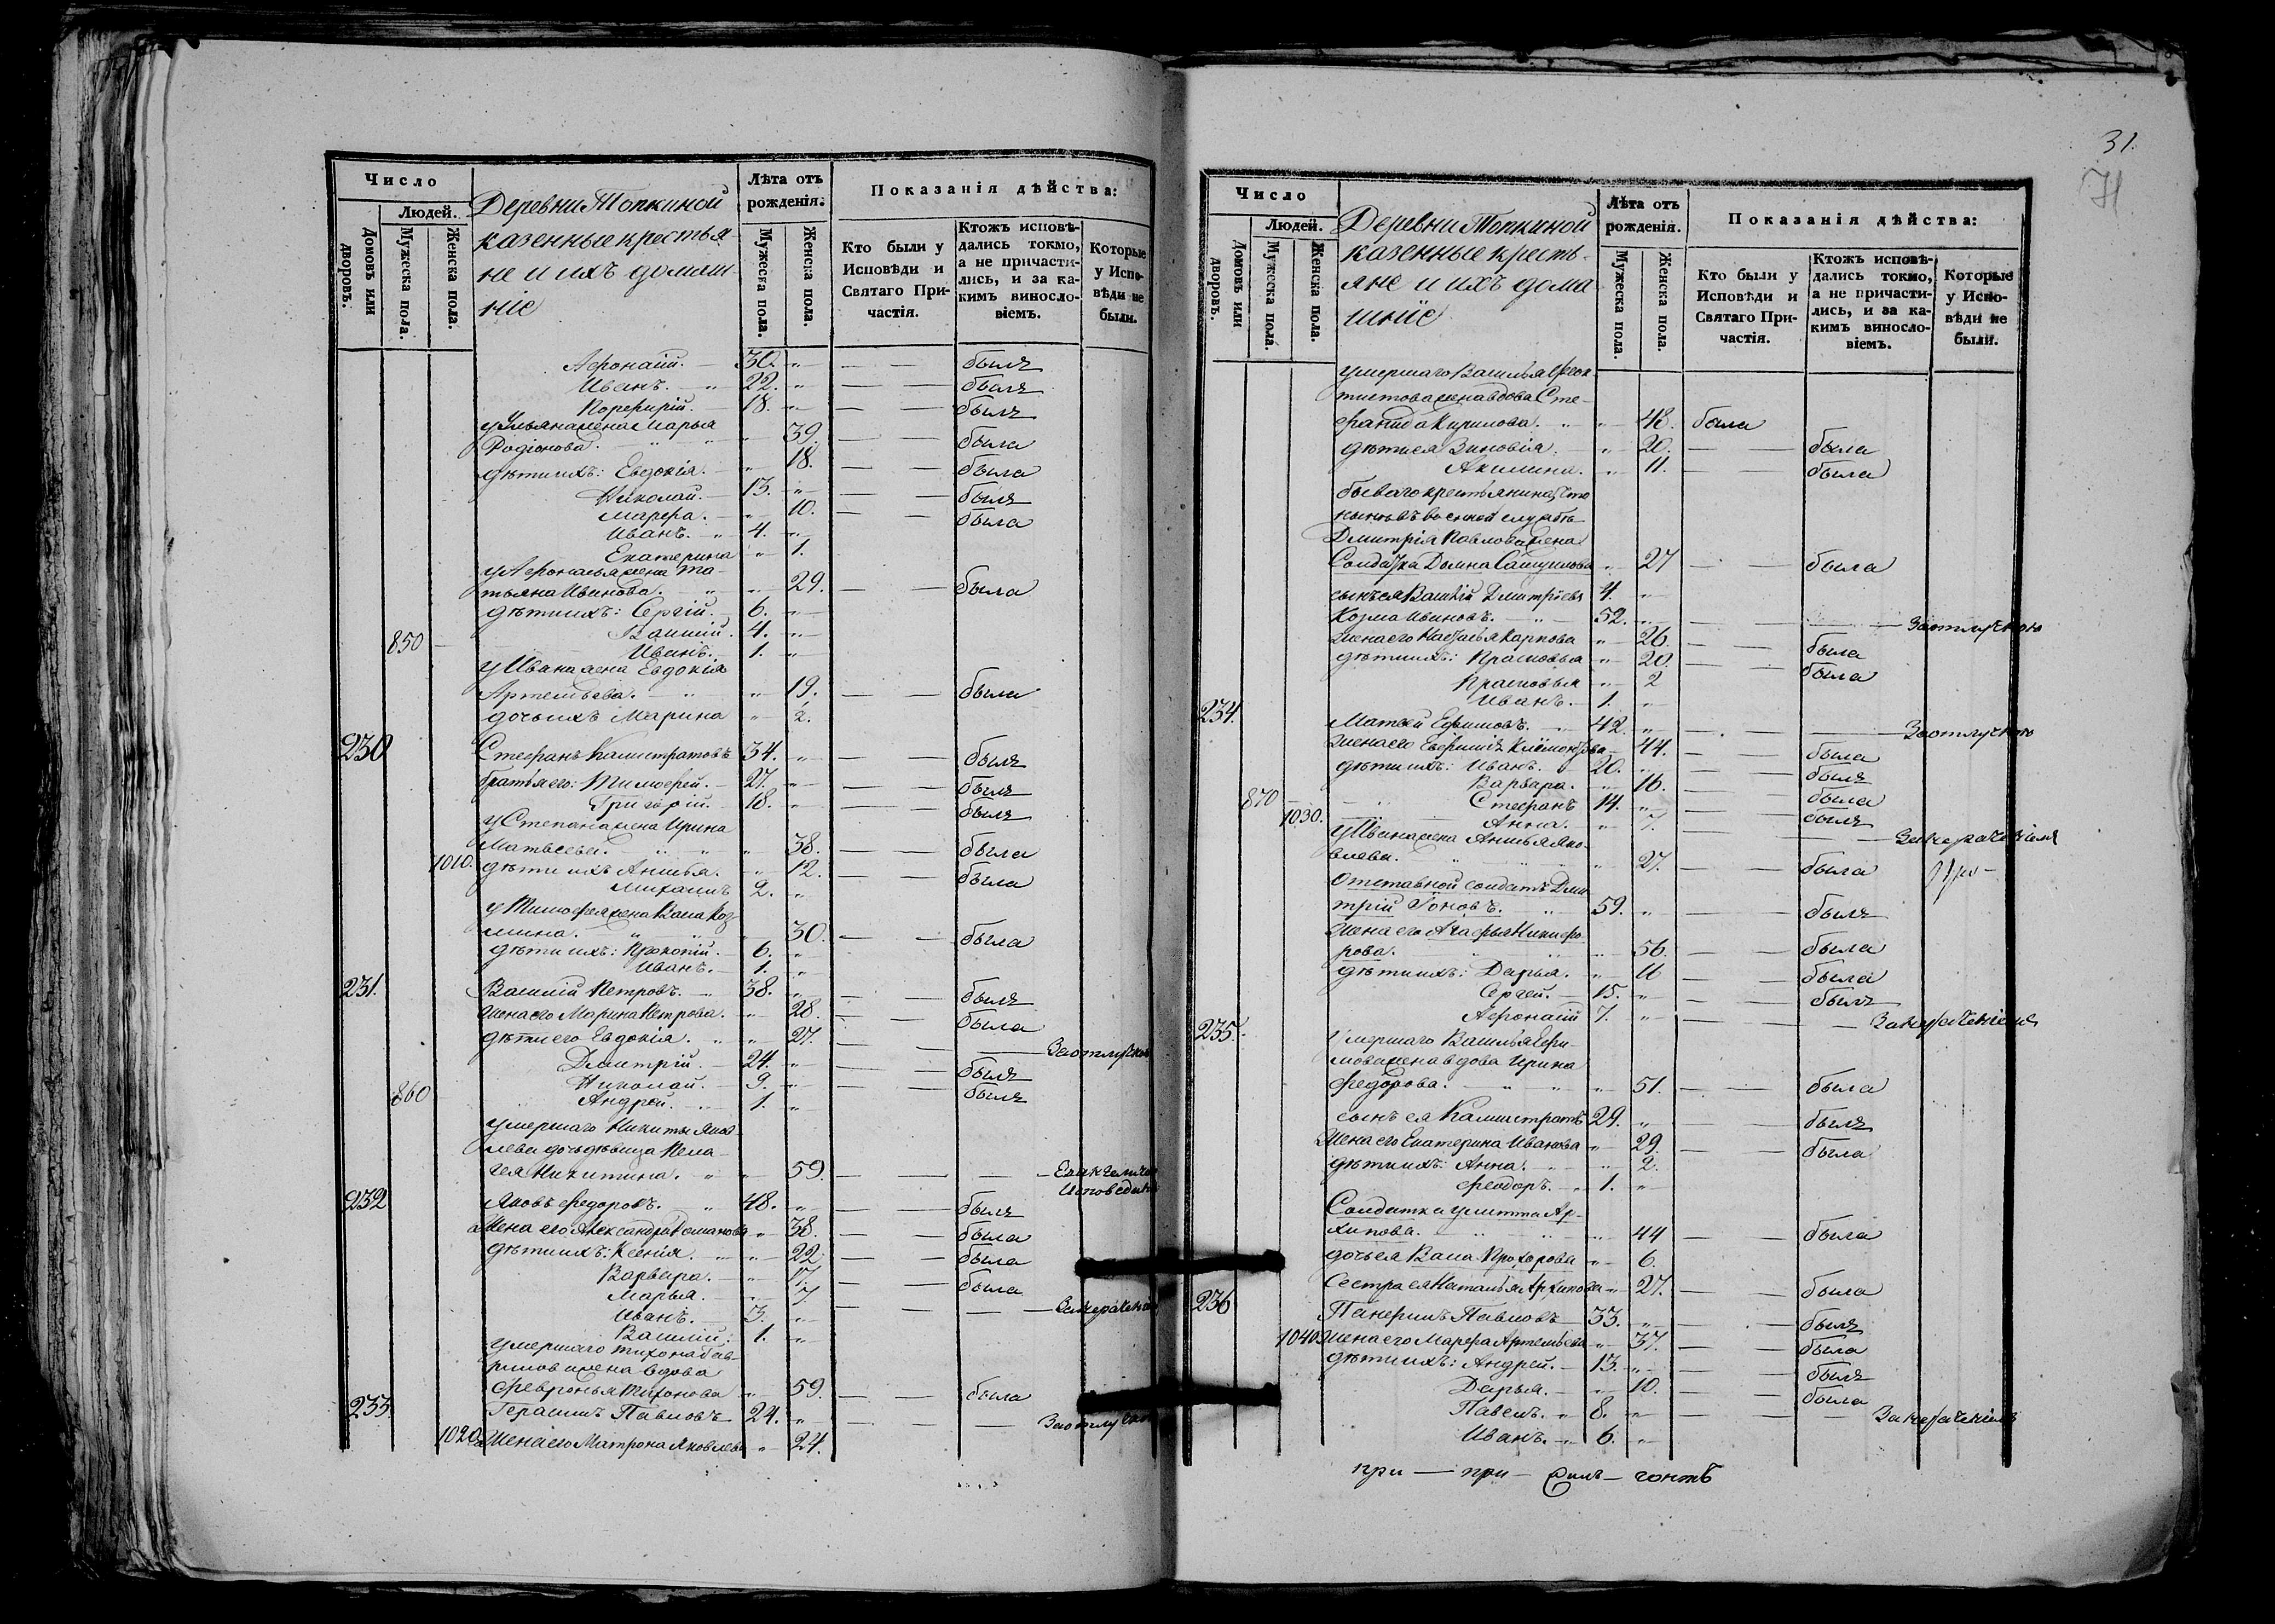 Число
Людей.
Домовъ или дворовъ.
Мужеска пола.
Женска пола.
Деревни Топкиной
казенные крестья-
не и ихъ домаш-
ніе
Лѣта отъ рожденія.
Мужеска пола.
Женска пола.
Показанія дѣйства:
Кто были у Исповѣди и Святаго При-частія.
Ктожъ исповѣ-дались токмо, а не причасти-лись, и за ка-кимъ винословіемъ.
Которые у Испо-вѣди не были.
Афонасій. 30. былъ
Иванъ. 22. былъ
Порфирій. 18. былъ
у Ульяна жена Марья
Родіонова. 39. была
дѣти ихъ: Евдокія. 18. была
Николай. 13. былъ
Марфа. 10. была
Иванъ. 4.
Екатерина 1.
у Афонасья жена Та-
тьяна Иванова. 29. была
дѣти ихъ: Сергій. 6.
Василій. 4.
850 Иванъ. 1.
у Ивана жена Евдокія
Артемьева. 19. была
дочь ихъ Марина 2.
230 Стефанъ Калистратовъ 34. былъ
братья его: Тимофей. 27. былъ
Григорій. 18. былъ
у Степана жена Ирина
Матвеева. 38. была
1010. дѣти ихъ Анисья. 12. была
Михаилъ 2.
у Тимофея жена Васа Коз-
мина. 30. была
дѣти ихъ: Прокопій. 6.
Иванъ. 1.
231. Василій Петровъ. 38. былъ
Жена его Марина Петрова. 28. была
дѣти его Евдокія. 27. За отлучкою
Дмитрій. 24. былъ
Николай. 9. былъ
860 Андрей. 1.
умершаго Никиты Яков-
лева дочь дѣвица Пела-
гея Никитина. 59.
232 Яковъ Федоровъ. 48. былъ
Жена его Александра Романова 38. была
дѣти ихъ: Ксенія. 22. была
Варвара. 17. была
Марья. 7.
Иванъ. 3.
Василій. 1.
умершаго Тихона Гав-
рилов жена вдова
Февронья Тихонова 59. была
233 Герасимъ Павловъ 24. За отлучкою
1020. Жена его Матрона Яковлева 24.
31.
Число
Людей.
Домовъ или дворовъ.
Мужеска пола.
Женска пола.
Деревни Топкиной
казенные кресть-
яне и ихъ дома
шніе
Лѣта отъ рожденія.
Мужеска пола.
Женска пола.
Показанія дѣйства:
Кто были у Исповѣди и Святаго При-частія.
Ктожъ исповѣ-дались токмо, а не причасти-лись, и за ка-кимъ винословіемъ.
Которые у Испо-вѣди не были.
умершаго Василья Феок-
тистова жена вдова Сте-
фанида Кирилова. 48. была
дѣти ея Зиновія. 20. была
Акилина. 11. была
бывшаго крестьянина что
нынѣ въ военной службѣ
Дмитрія Павлова жена
Солдатка Домна 27 была
сынъ ея Василій Дмитріевъ 4.
Козма Ивановъ. 52. За отлучкою
Жена его Наталья Карпова 26. была
дѣти ихъ: Прасковья 20. была
Прасковья 2
Иванъ. 1.
234. Матвей Ефимовъ. 42. За отлучкою
Жена его Евфимія 44. была
дѣти ихъ: Иванъ. 20. былъ
Варвара. 16. была
870 Стефанъ 14. былъ
1030. Анна. 7.
у Ивана жена Анисья Яко-
влева. 27. была
Отставной солдатъ Дми-
трій Іоновъ. 59. былъ
Жена его Агафья Никифо-
рова. 56. была
дѣти ихъ: Дарья. 11 была
Сергей. 15. былъ
Афонасій 7.
235. Умершаго Василья Ефи-
мова жена вдова Ирина
Федорова. 51. была
сынъ ея Калистратъ 29. былъ
Жена его Екатерина Иванова 29. была
дѣти ихъ: Анна. 2.
Феодоръ. 1.
Солдатка Улитта Ар-
хипова. 44 была
дочь ея Васа Прохорова 6.
Сестра ея Наталья Архипова 27. была
236 Панфилъ Павловъ 33. былъ
1040. Жена его Марфа Артемьева 37. была
дѣти ихъ: Андрей. 13. былъ
Дарья. 10. была
Павелъ. 8.
Иванъ. 6.